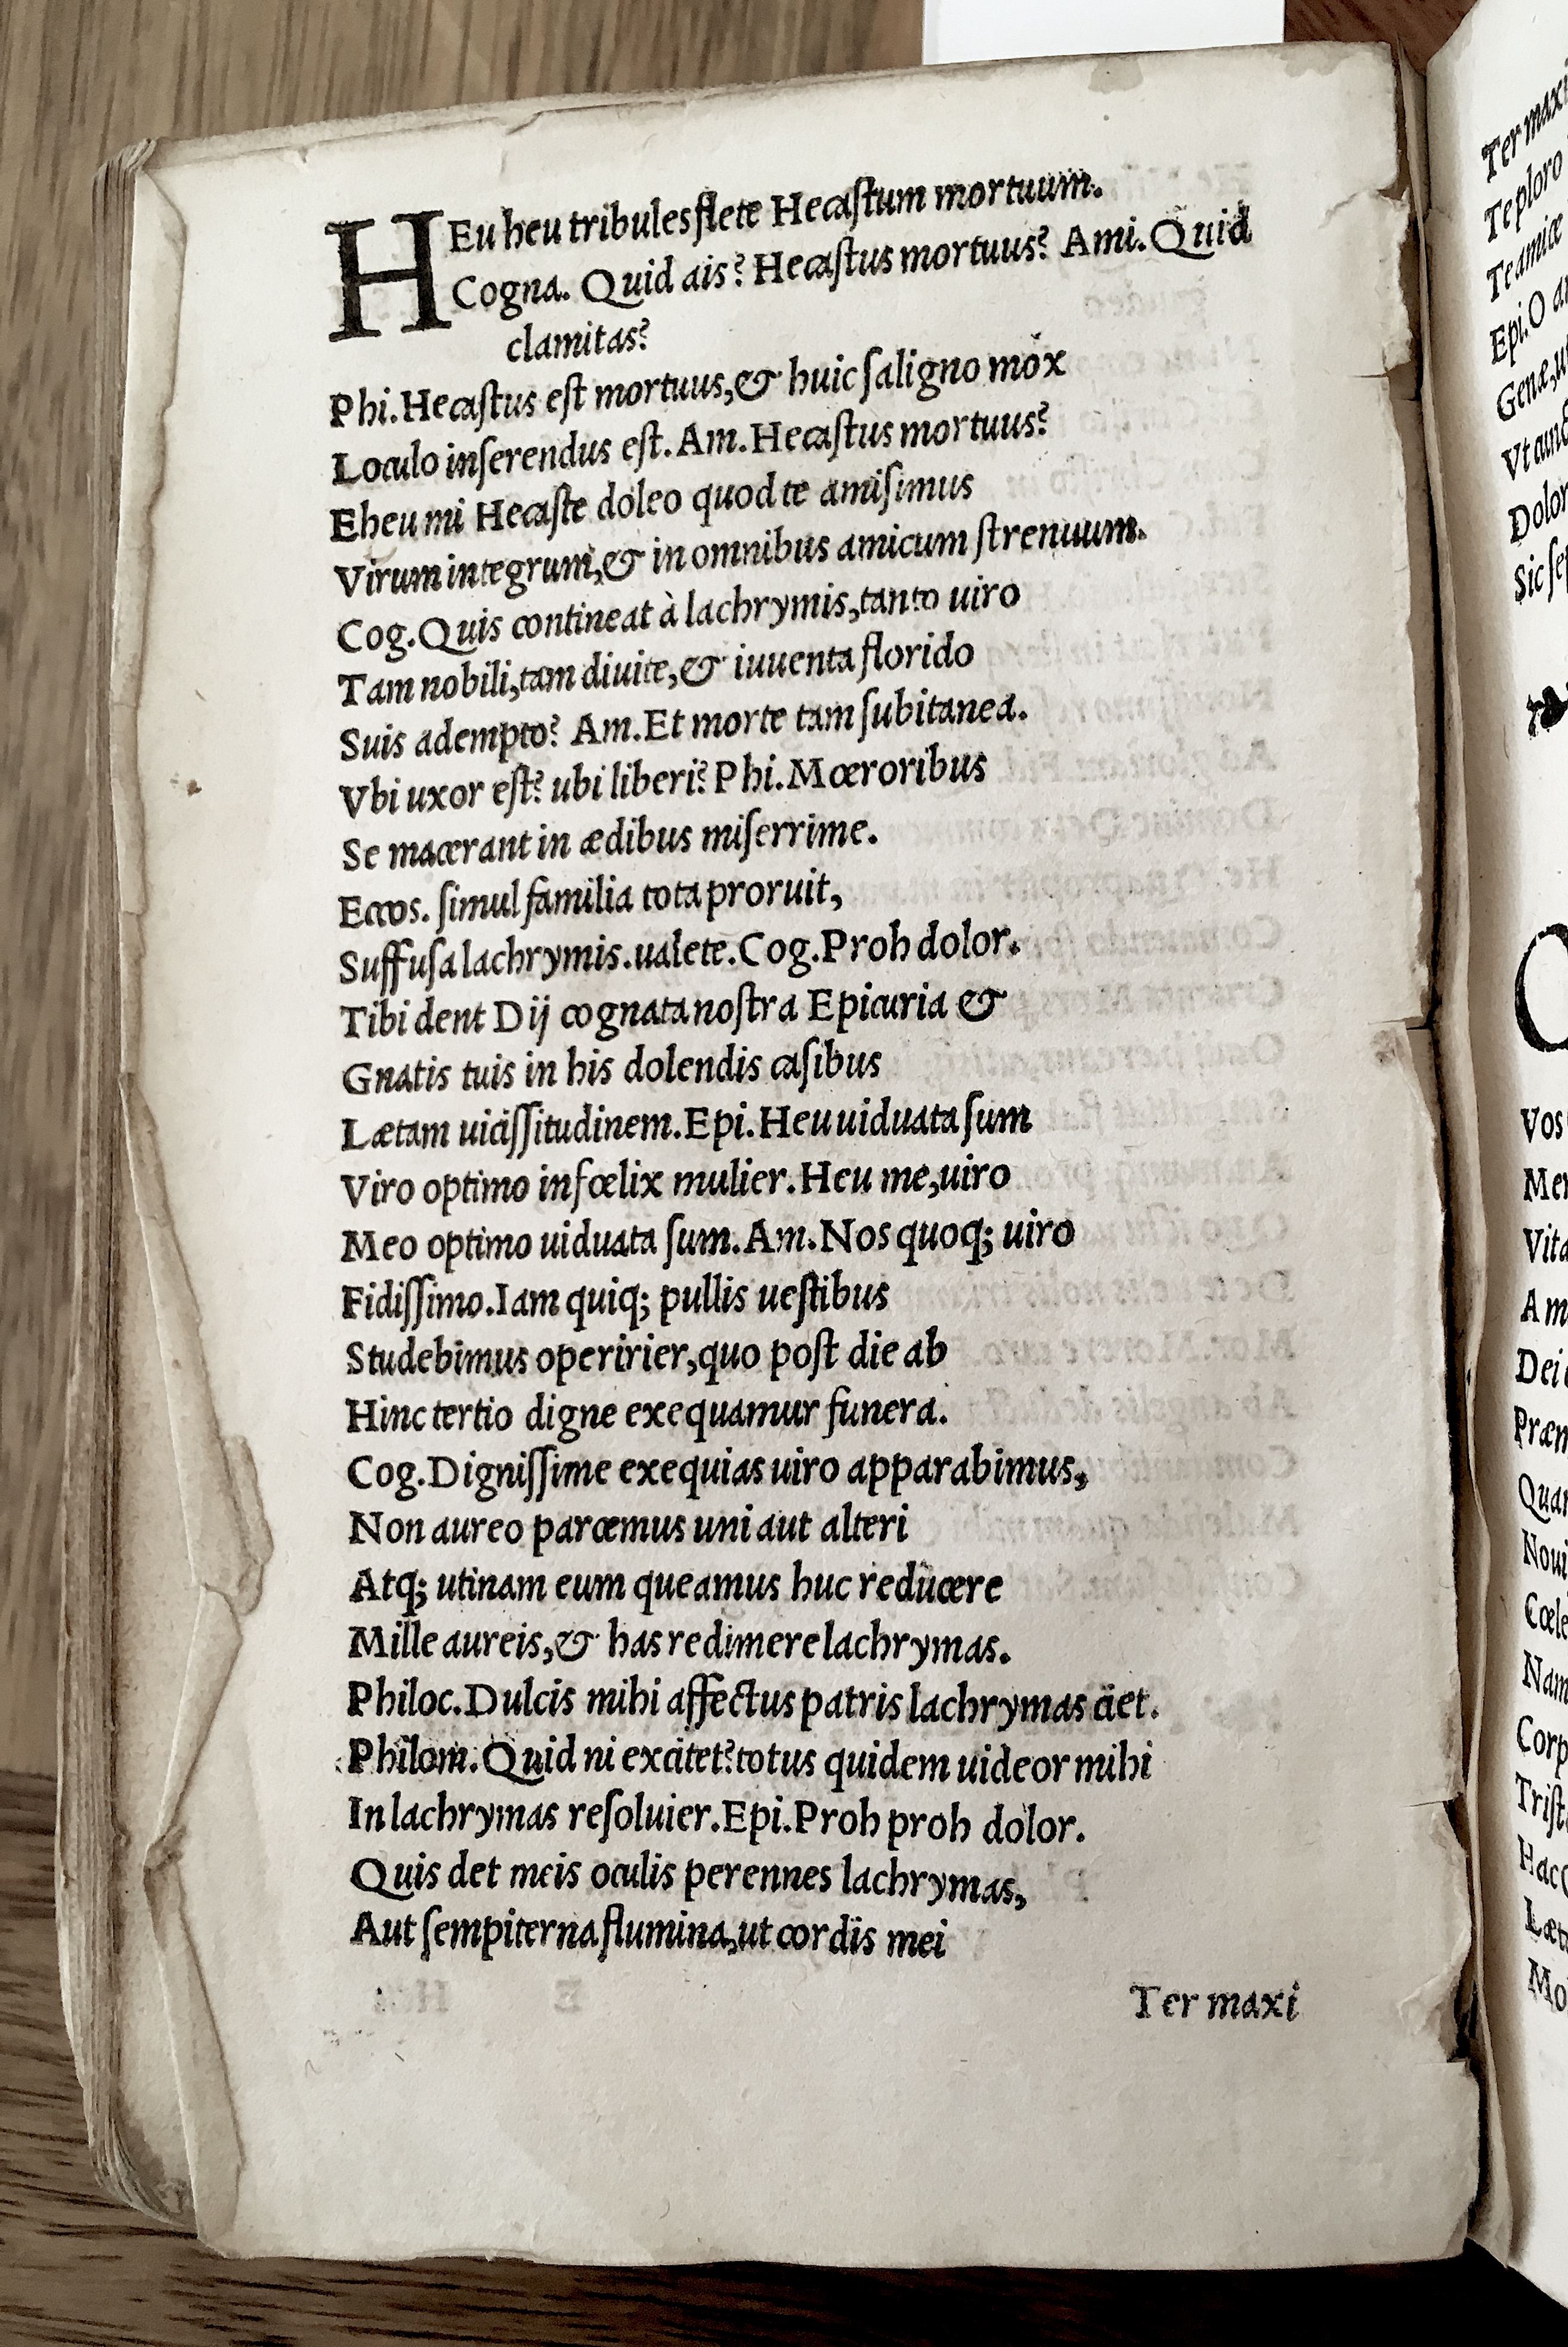 HEu heu tribules flete Hecaſtum mortuum.
Cogna. Quid ais? Hecaſtus mortuus? Ami. Quid
clamitas?
Phi. Hecaſtus eſt mortuus, & huic ſaligno mox
Loculo inſerendus eſt. Am. Hecaſtus mortuus?
Eheu mi Hecaſte doleo quod te amiſimus
Virum integrum, & in omnibus amicum ſtrenuum.
Cog. Quis contineat à lachrymis, tanto uiro
Tam nobili, tam diuite, & iuuenta florido
Suis adempto? Am. Et morte tam ſubitanea.
Vbi uxor eſt? ubi liberi? Phi. Mœroribus
Se macerant in ædibus miſerrime.
Eccos. ſimul familia tota proruit,
Suffuſa lachrymis. ualete. Cog. Proh dolor.
Tibi dent Dij cognata noſtra Epicuria &
Gnatis tuis in his dolendis caſibus
Lætam uiciſſitudinem. Epi. Heu uiduata ſum
Viro optimo infœlix mulier. Heu me, uiro
Meo optimo uiduata ſum. Am. Nos quoq; uiro
Fidiſſimo. Iam quiq; pullis ueſtibus
Studebimus operirier, quo poſt die ab
Hinc tertio digne exequamur funera.
Cog. Digniſſime exequias uiro apparabimus,
Non aureo parcemus uni aut alteri
Atq; utinam eum queamus huc reducere
Mille aureis, & has redimere lachrymas.
Philoc. Dulcis mihi affectus patris lachrymas ciet.
Philom. Quid ni excitet? totus quidem uideor mihi
In lachrymas reſoluier. Epi. Proh proh dolor.
Quis det meis oculis perennes lachrymas,
Aut ſempiterna flumina, ut cordis mei
Ter maxi
Ter maxi
Te ploro
Te amicæ
Epi. O
Dolor
Vos
Vita
Dei
Corp